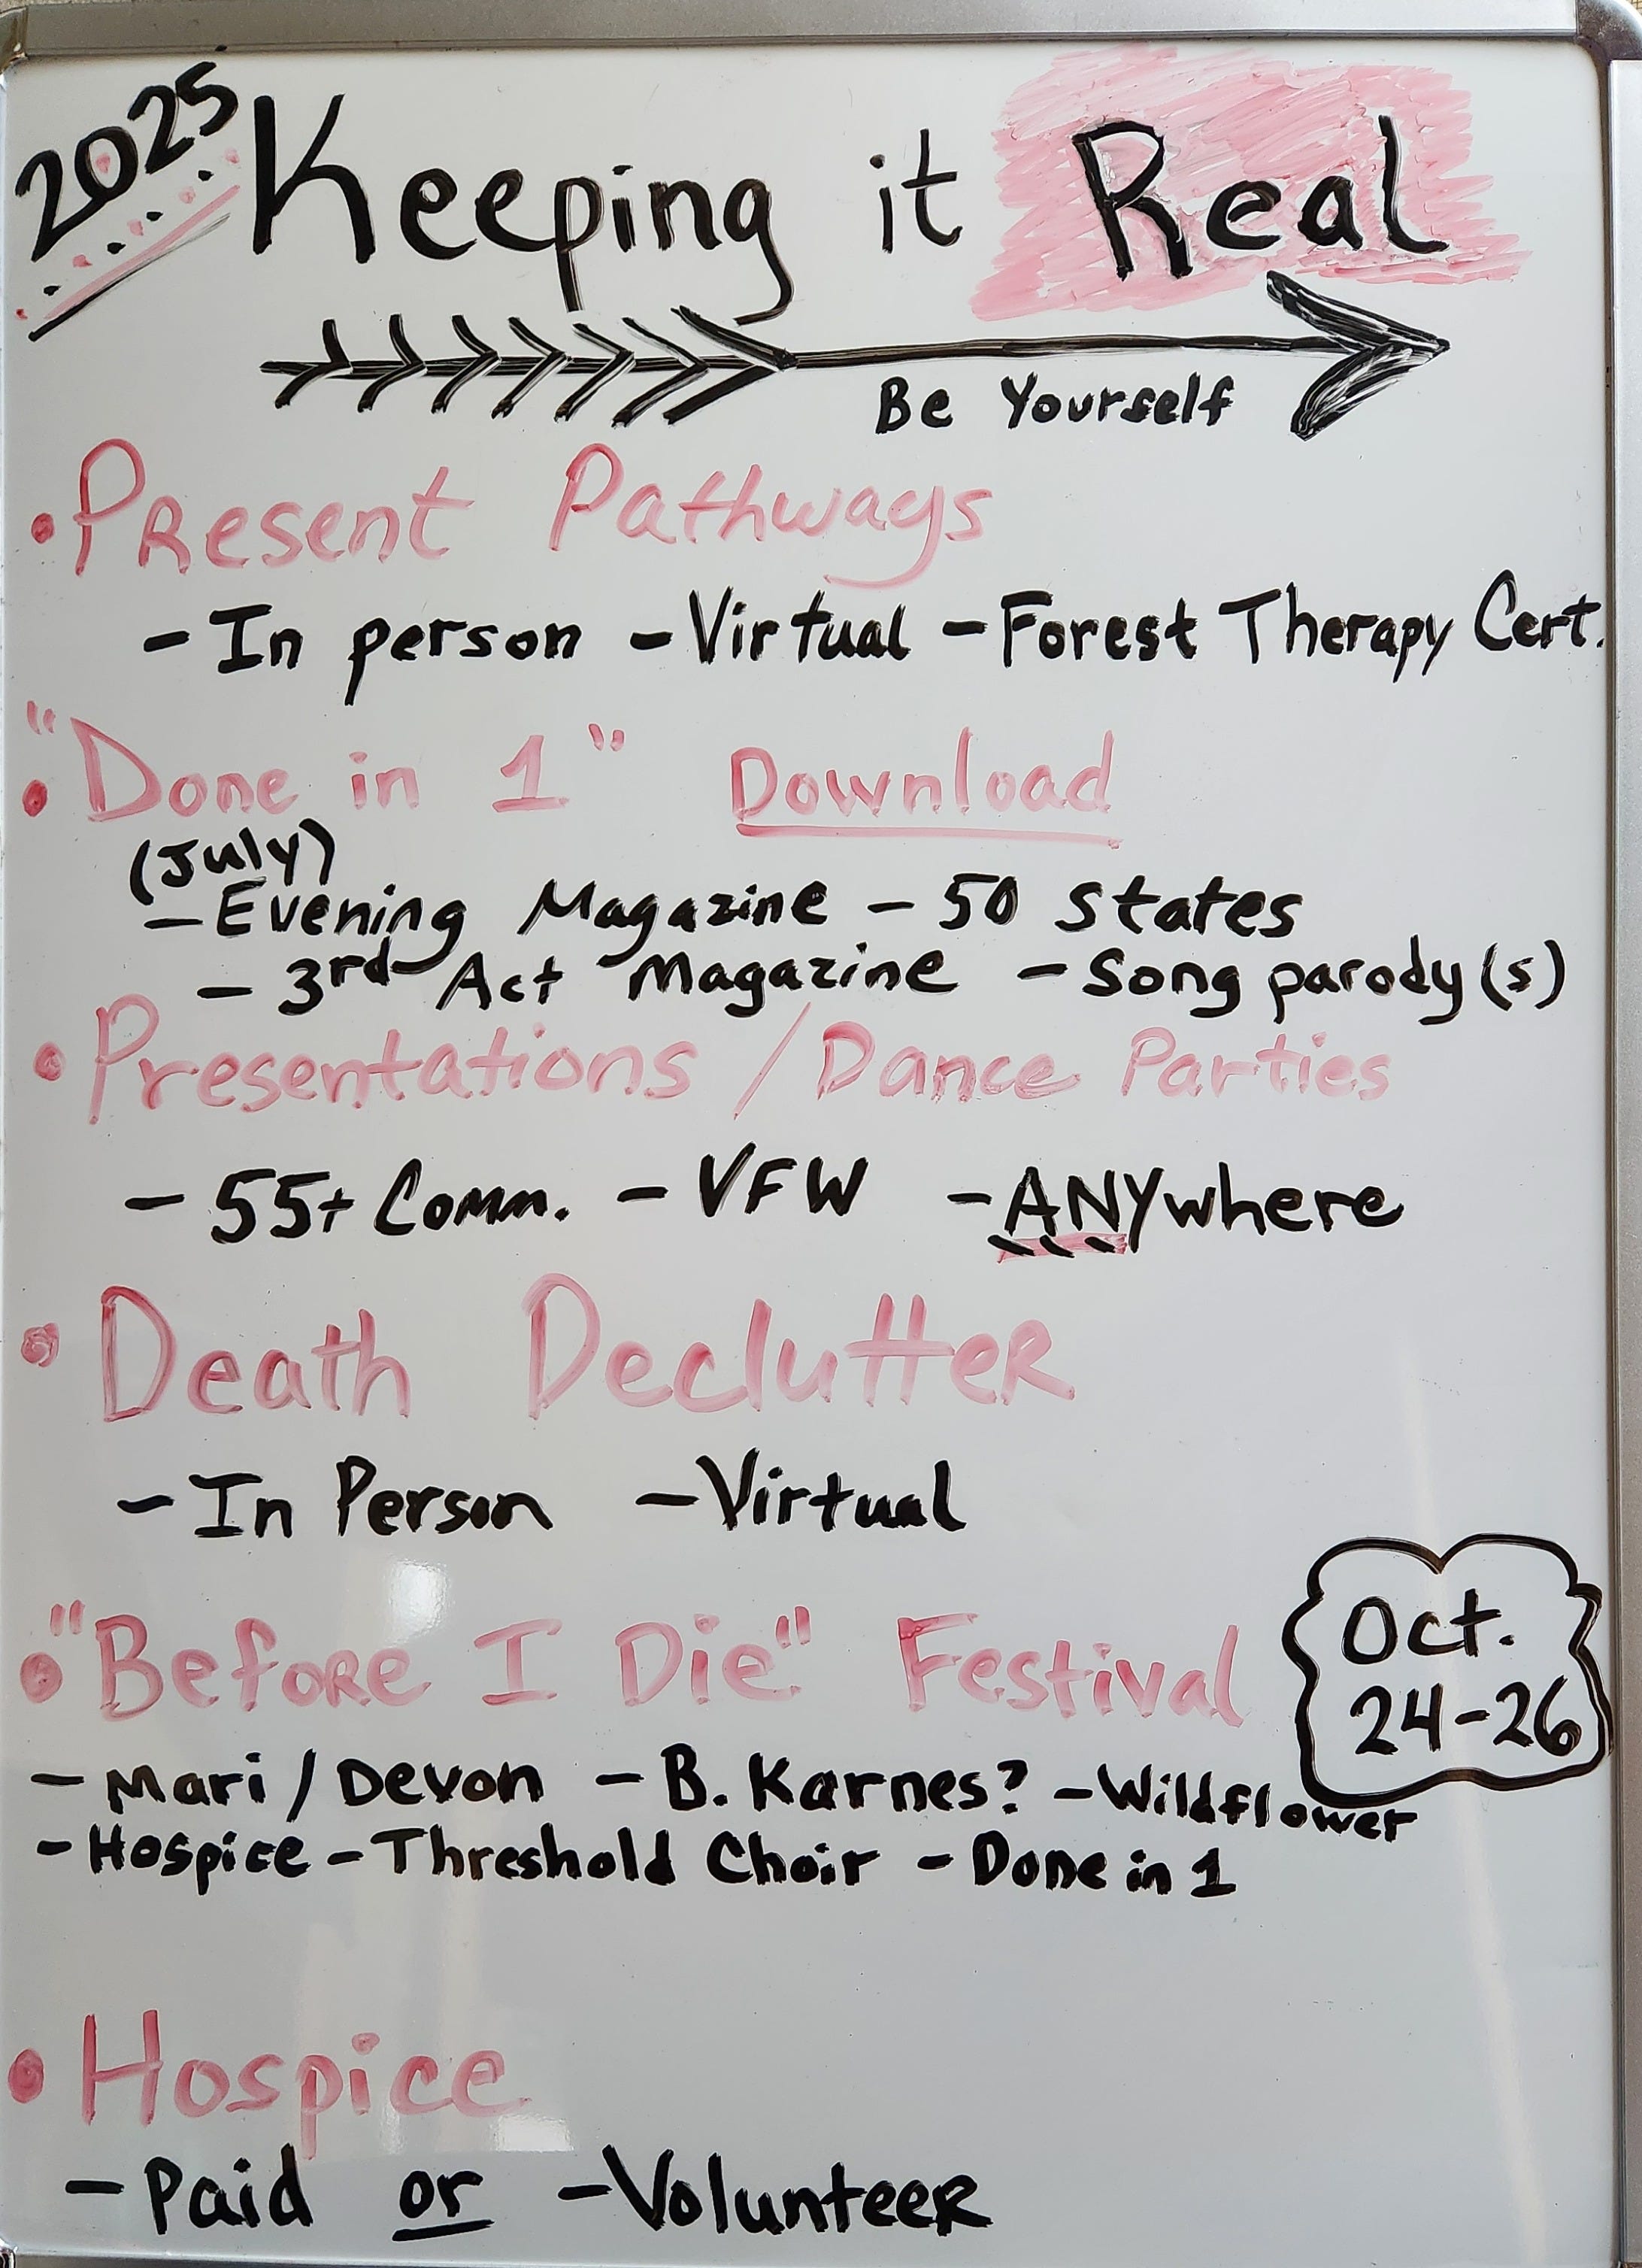 2025 Keeping it Real
Be Yourself
• Present Pathways
- In person - Virtual - Forest Therapy Cert.
• "Done in 1" Download
(July)
- Evening Magazine - 50 States
- 3rd Act Magazine - Song parody(s)
• Presentations / Dance Parties
- 55+ Comm. - VFW - ANYwhere
• Death Declutter
- In Person - Virtual
• "Before I Die" Festival
Oct.
24-26
- Mari / Devon - B. Karnes? - Wildflower
- Hospice - Threshold Choir - Done in 1
• Hospice
- Paid or - Volunteer